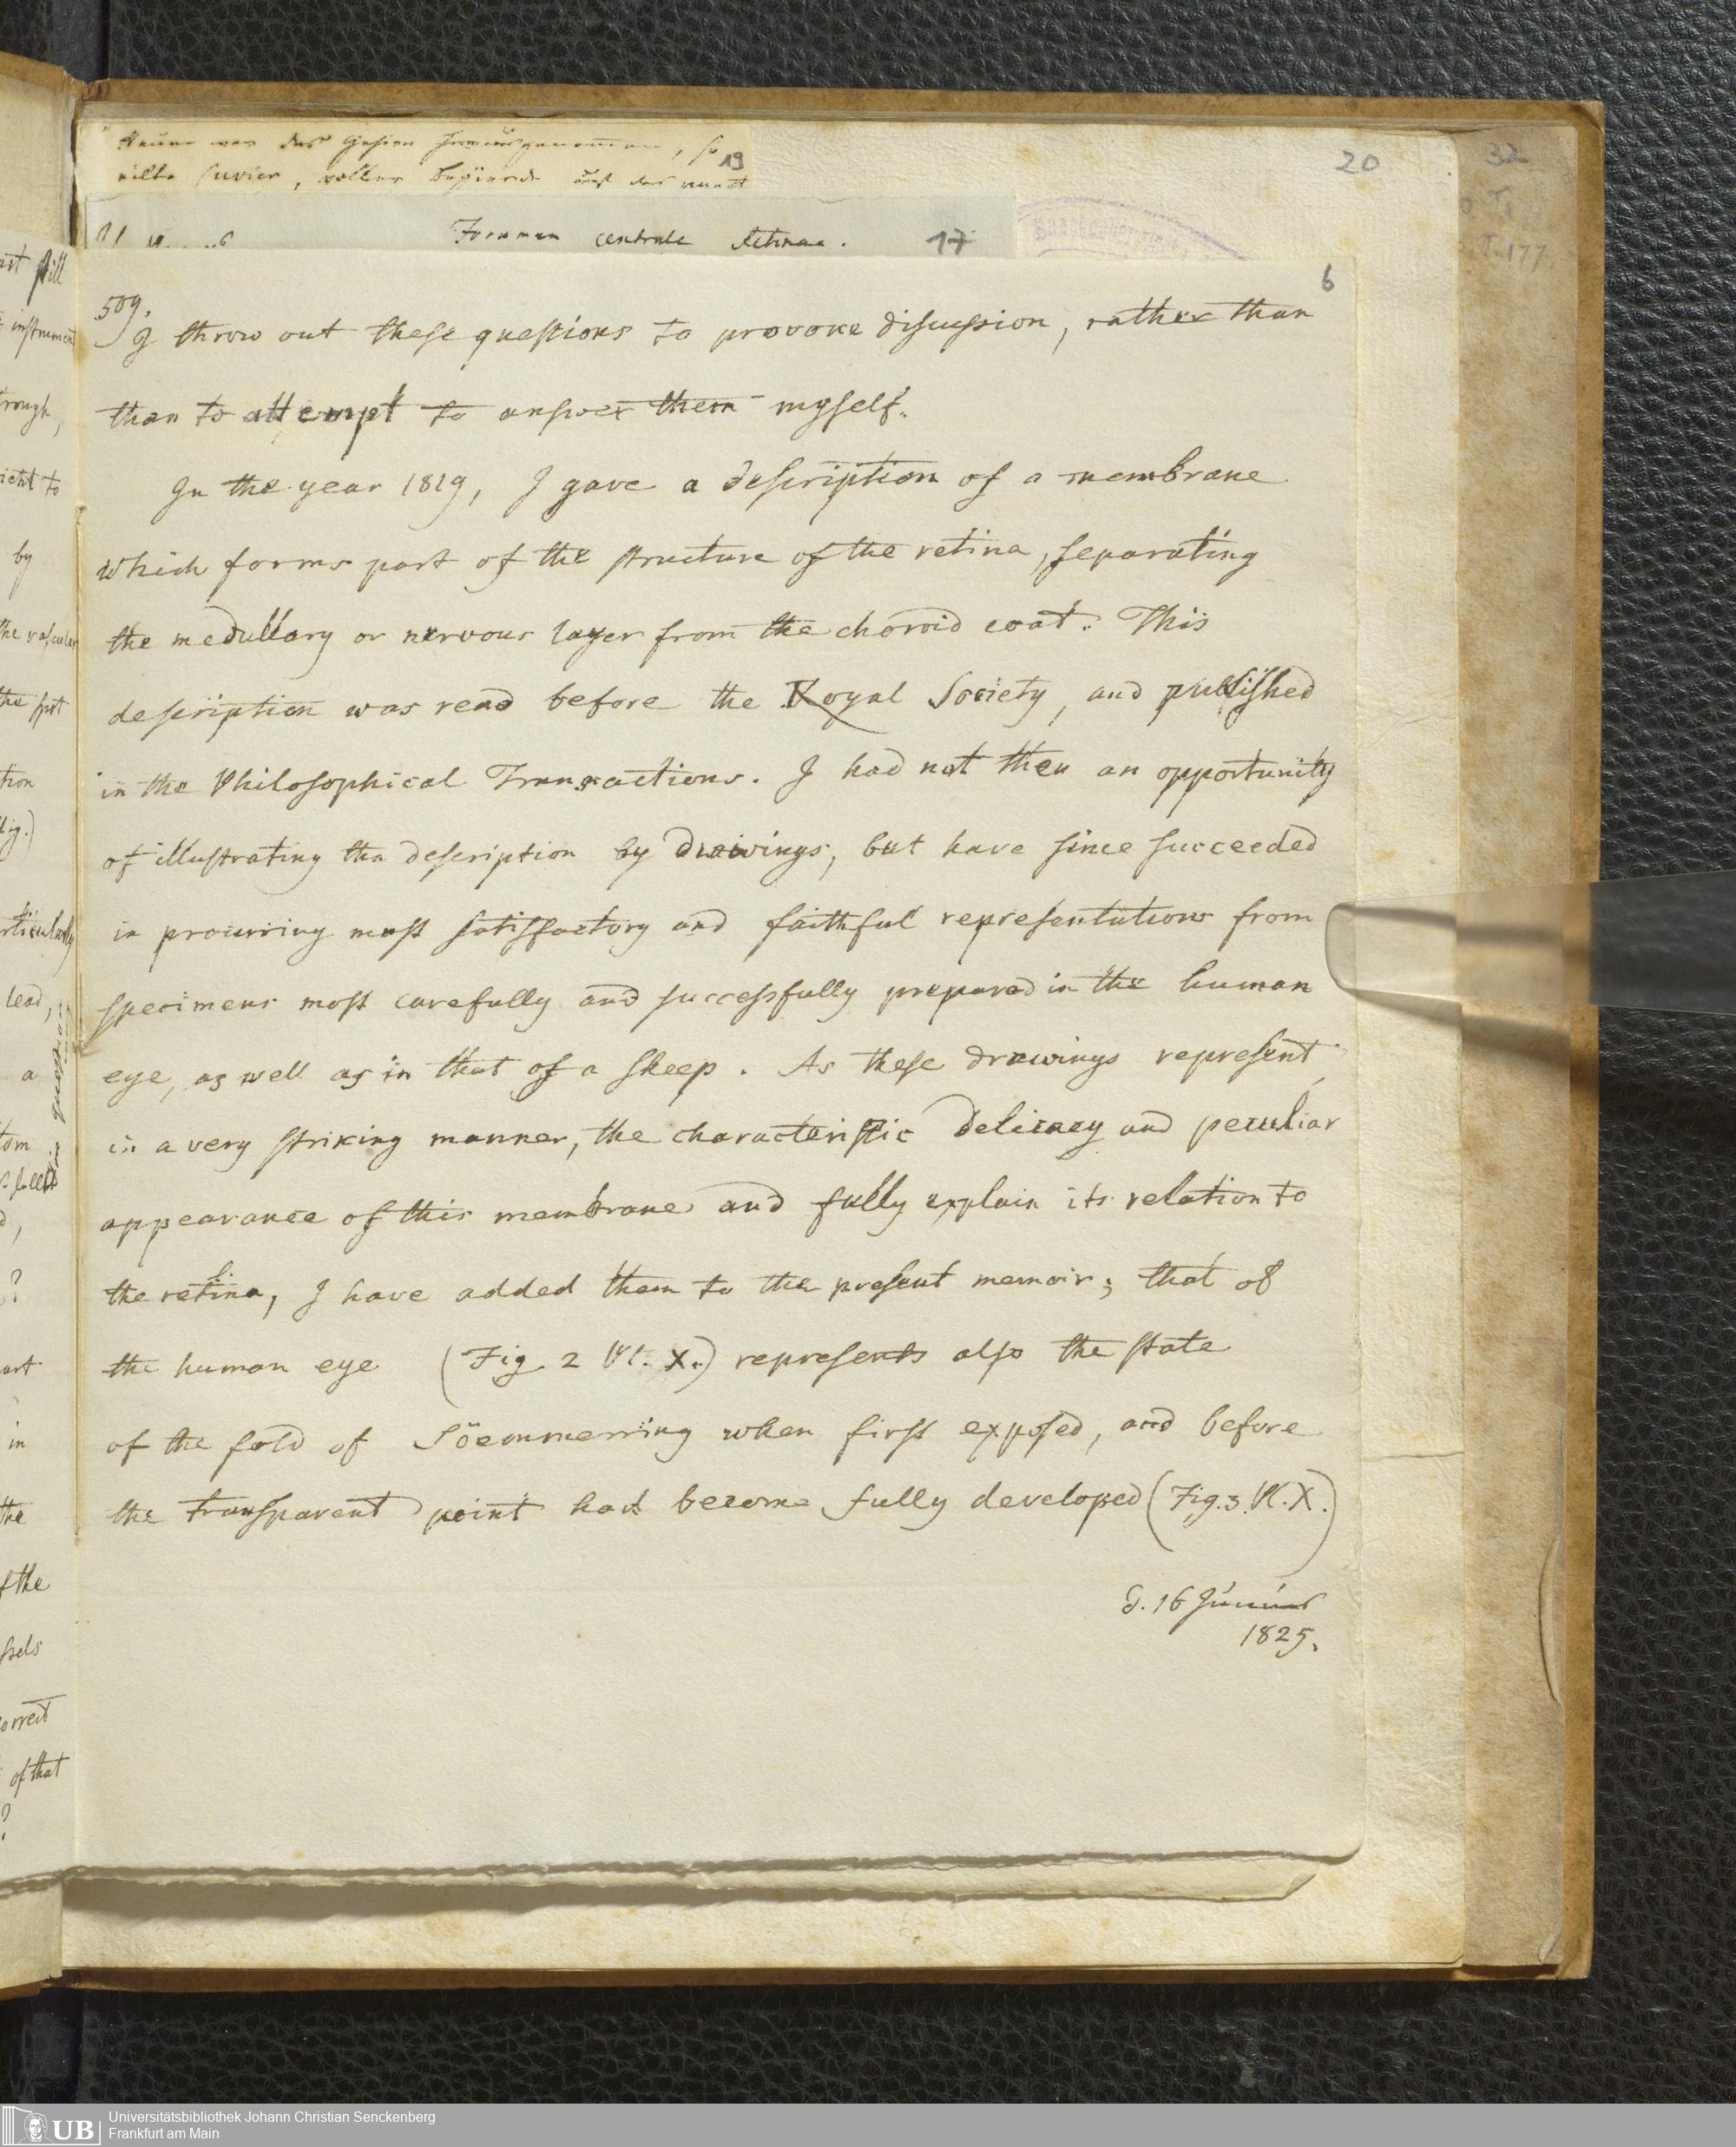 20
32
19
Cuvier,
Foramen centrale Retinae.
17
T. 177.
6
509.
I throw out these questions to provoke discussion, rather than
than to attempt to answer them myself.
In the year 1819, I gave a description of a membrane
which forms part of the structure of the retina, separating
the medullary or nervous layer from the choroid coat. This
description was read before the Royal Society, and published
in the Philosophical Transactions. I had not then an opportunity
of illustrating the description by drawings, but have since succeeded
in procuring most satisfactory and faithful representations from
specimens most carefully and successfully prepared in the human
eye, as well as in that of a sheep. As these drawings represent
in a very striking manner, the characteristic delicacy and peculiar
appearance of this membrane and fully explain its relation to
the retina, I have added them to the present memoir; that of
the human eye (Fig. 2 Pl. X.) represents also the state
of the fold of Söemmerring when first exposed, and before
the transparent point had become fully developed (Fig. 3. Pl. X.)
d. 16 Junius
1825.
instrument
rough,
by
the vascular
tion
lead,
a
?
in
the
of the
of that
?
UB
Universitätsbibliothek Johann Christian Senckenberg
Frankfurt am Main